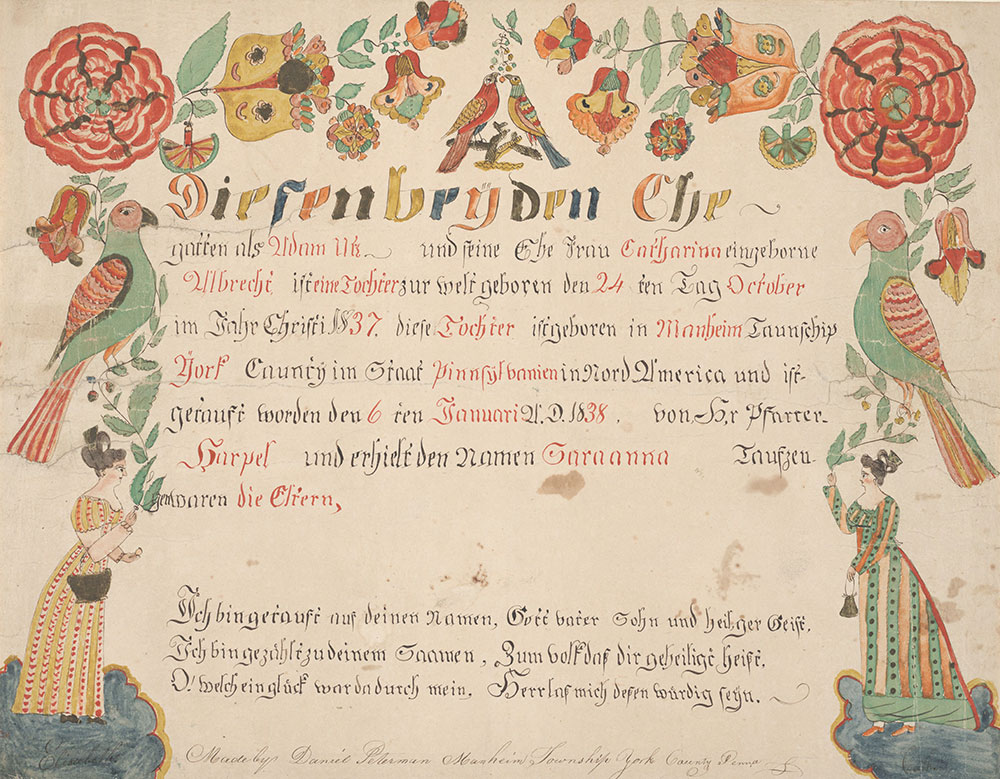 Diesen beÿden Ehe
gatten als Adam Utz und seine Ehe Frau Catharina eingeborne
Albrecht ist eine Tochter zur welt geboren den 24 ten Tag October
im Jahr Christi 1837. diese Tochter ist geboren in Manheim Taunschip
York Cauntÿ im Staat Pinnsylvanien in Nord America und ist
getauft worden den 6 ten Januari A.D. 1838, von Hr Pfarrer
Harpel und erhielt den Namen Saraanna Taufzeu
gen waren die Eltern,
Ich bin getauft auf deinen Namen, Gott vater Sohn und heilger Geist,
Ich bin gezählt zu deinem Saamen, Zum volk das dir geheiligt heist.
O! welch ein glück war dadurch mein, Herr las mich desen würdig seÿn.
Made by Daniel Peterman Manheim Township York County Penna